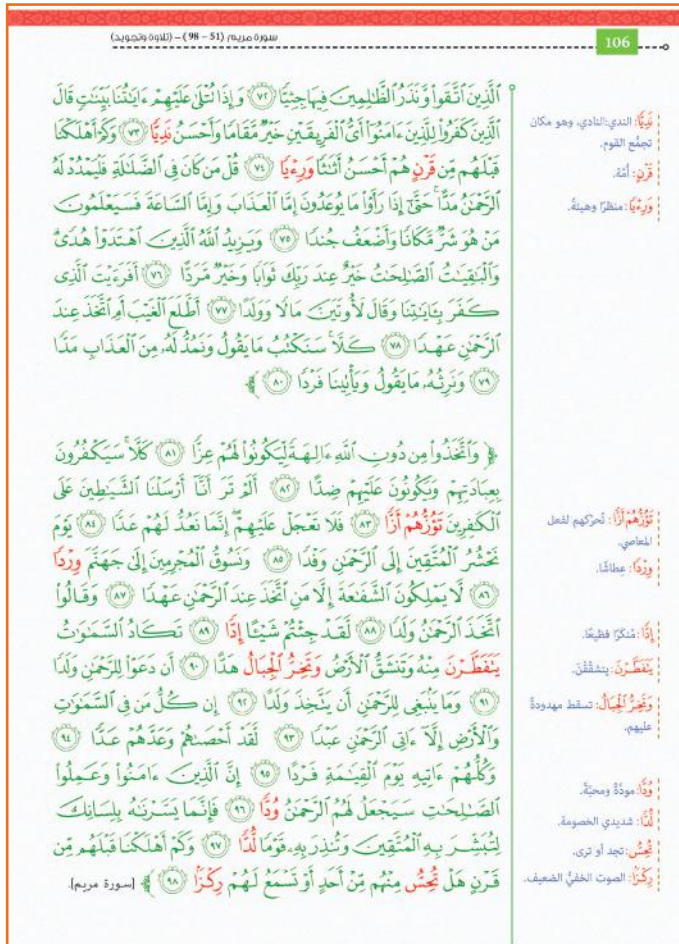 سورة مريم (51 - 98) - (تلاوة وتجويد)
106
ٱلَّذِينَ ٱتَّقَواْ وَّنَذَرُ ٱلظَّٰلِمِينَ فِيهَا جِثِيًّا ٧٢ وَإِذَا تُتْلَىٰ عَلَيْهِمْ ءَايَٰتُنَا بَيِّنَٰتٍ قَالَ
ٱلَّذِينَ كَفَرُواْ لِلَّذِينَ ءَامَنُوٓاْ أَىُّ ٱلْفَرِيقَيْنِ خَيْرٌ مَّقَامًا وَأَحْسَنُ نَدِيًّا ٧٣ وَكَمْ أَهْلَكْنَا
قَبْلَهُم مِّن قَرْنٍ هُمْ أَحْسَنُ أَثَٰثًا وَرِءْيًا ٧٤ قُلْ مَن كَانَ فِى ٱلضَّلَٰلَةِ فَلْيَمْدُدْ لَهُ
ٱلرَّحْمَٰنُ مَدًّا حَتَّىٰٓ إِذَا رَأَوْاْ مَا يُوعَدُونَ إِمَّا ٱلْعَذَابَ وَإِمَّا ٱلسَّاعَةَ فَسَيَعْلَمُونَ
مَنْ هُوَ شَرٌّ مَّكَانًا وَأَضْعَفُ جُندًا ٧٥ وَيَزِيدُ ٱللَّهُ ٱلَّذِينَ ٱهْتَدَوْاْ هُدًى
وَٱلْبَٰقِيَٰتُ ٱلصَّٰلِحَٰتُ خَيْرٌ عِندَ رَبِّكَ ثَوَابًا وَخَيْرٌ مَّرَدًّا ٧٦ أَفَرَءَيْتَ ٱلَّذِى
كَفَرَ بِـَٔايَٰتِنَا وَقَالَ لَأُوتَيَنَّ مَالًا وَوَلَدًا ٧٧ أَطَّلَعَ ٱلْغَيْبَ أَمِ ٱتَّخَذَ عِندَ
ٱلرَّحْمَٰنِ عَهْدًا ٧٨ كَلَّا سَنَكْتُبُ مَا يَقُولُ وَنَمُدُّ لَهُۥ مِنَ ٱلْعَذَابِ مَدًّا
٧٩ وَنَرِثُهُۥ مَا يَقُولُ وَيَأْتِينَا فَرْدًا ٨٠ ﴾
﴿ وَٱتَّخَذُواْ مِن دُونِ ٱللَّهِ ءَالِهَةً لِّيَكُونُواْ لَهُمْ عِزًّا ٨١ كَلَّا سَيَكْفُرُونَ
بِعِبَادَتِهِمْ وَيَكُونُونَ عَلَيْهِمْ ضِدًّا ٨٢ أَلَمْ تَرَ أَنَّآ أَرْسَلْنَا ٱلشَّيَٰطِينَ عَلَى
ٱلْكَٰفِرِينَ تَؤُزُّهُمْ أَزًّا ٨٣ فَلَا تَعْجَلْ عَلَيْهِمْ إِنَّمَا نَعُدُّ لَهُمْ عَدًّا ٨٤ يَوْمَ
نَحْشُرُ ٱلْمُتَّقِينَ إِلَى ٱلرَّحْمَٰنِ وَفْدًا ٨٥ وَنَسُوقُ ٱلْمُجْرِمِينَ إِلَىٰ جَهَنَّمَ وِرْدًا
٨٦ لَّا يَمْلِكُونَ ٱلشَّفَٰعَةَ إِلَّا مَنِ ٱتَّخَذَ عِندَ ٱلرَّحْمَٰنِ عَهْدًا ٨٧ وَقَالُواْ
ٱتَّخَذَ ٱلرَّحْمَٰنُ وَلَدًا ٨٨ لَّقَدْ جِئْتُمْ شَيْـًٔا إِدًّا ٨٩ تَكَادُ ٱلسَّمَٰوَٰتُ
يَتَفَطَّرْنَ مِنْهُ وَتَنشَقُّ ٱلْأَرْضُ وَتَخِرُّ ٱلْجِبَالُ هَدًّا ٩٠ أَن دَعَوْاْ لِلرَّحْمَٰنِ وَلَدًا
٩١ وَمَا يَنۢبَغِى لِلرَّحْمَٰنِ أَن يَتَّخِذَ وَلَدًا ٩٢ إِن كُلُّ مَن فِى ٱلسَّمَٰوَٰتِ
وَٱلْأَرْضِ إِلَّآ ءَاتِى ٱلرَّحْمَٰنِ عَبْدًا ٩٣ لَّقَدْ أَحْصَىٰهُمْ وَعَدَّهُمْ عَدًّا ٩٤
وَكُلُّهُمْ ءَاتِيهِ يَوْمَ ٱلْقِيَٰمَةِ فَرْدًا ٩٥ إِنَّ ٱلَّذِينَ ءَامَنُواْ وَعَمِلُواْ
ٱلصَّٰلِحَٰتِ سَيَجْعَلُ لَهُمُ ٱلرَّحْمَٰنُ وُدًّا ٩٦ فَإِنَّمَا يَسَّرْنَٰهُ بِلِسَانِكَ
لِتُبَشِّرَ بِهِ ٱلْمُتَّقِينَ وَتُنذِرَ بِهِۦ قَوْمًا لُّدًّا ٩٧ وَكَمْ أَهْلَكْنَا قَبْلَهُم مِّن
قَرْنٍ هَلْ تُحِسُّ مِنْهُم مِّنْ أَحَدٍ أَوْ تَسْمَعُ لَهُمْ رِكْزًۢا ٩٨ ﴾ [سورة مريم].
نَدِيًّا: الندي:النادي، وهو مكان
تجمُّع القوم.
قَرْنٍ: أمّة.
وَرِءْيًا: منظرًا وهيئة.
تَؤُزُّهُمْ أَزًّا: تُحرّكهم لفعل
المعاصي.
وِرْدًا: عِطاشًا.
إِدًّا: مُنكرًا فظيعًا.
يَتَفَطَّرْنَ: يتشقّقْنَ.
وَتَخِرُّ ٱلْجِبَالُ: تسقط مهدودةً
عليهم.
وُدًّا: مودّةً ومحبّة.
لُّدًّا: شديدي الخصومة.
تُحِسُّ: تجد أو ترى.
رِكْزًۢا: الصوت الخفيُّ الضعيف.